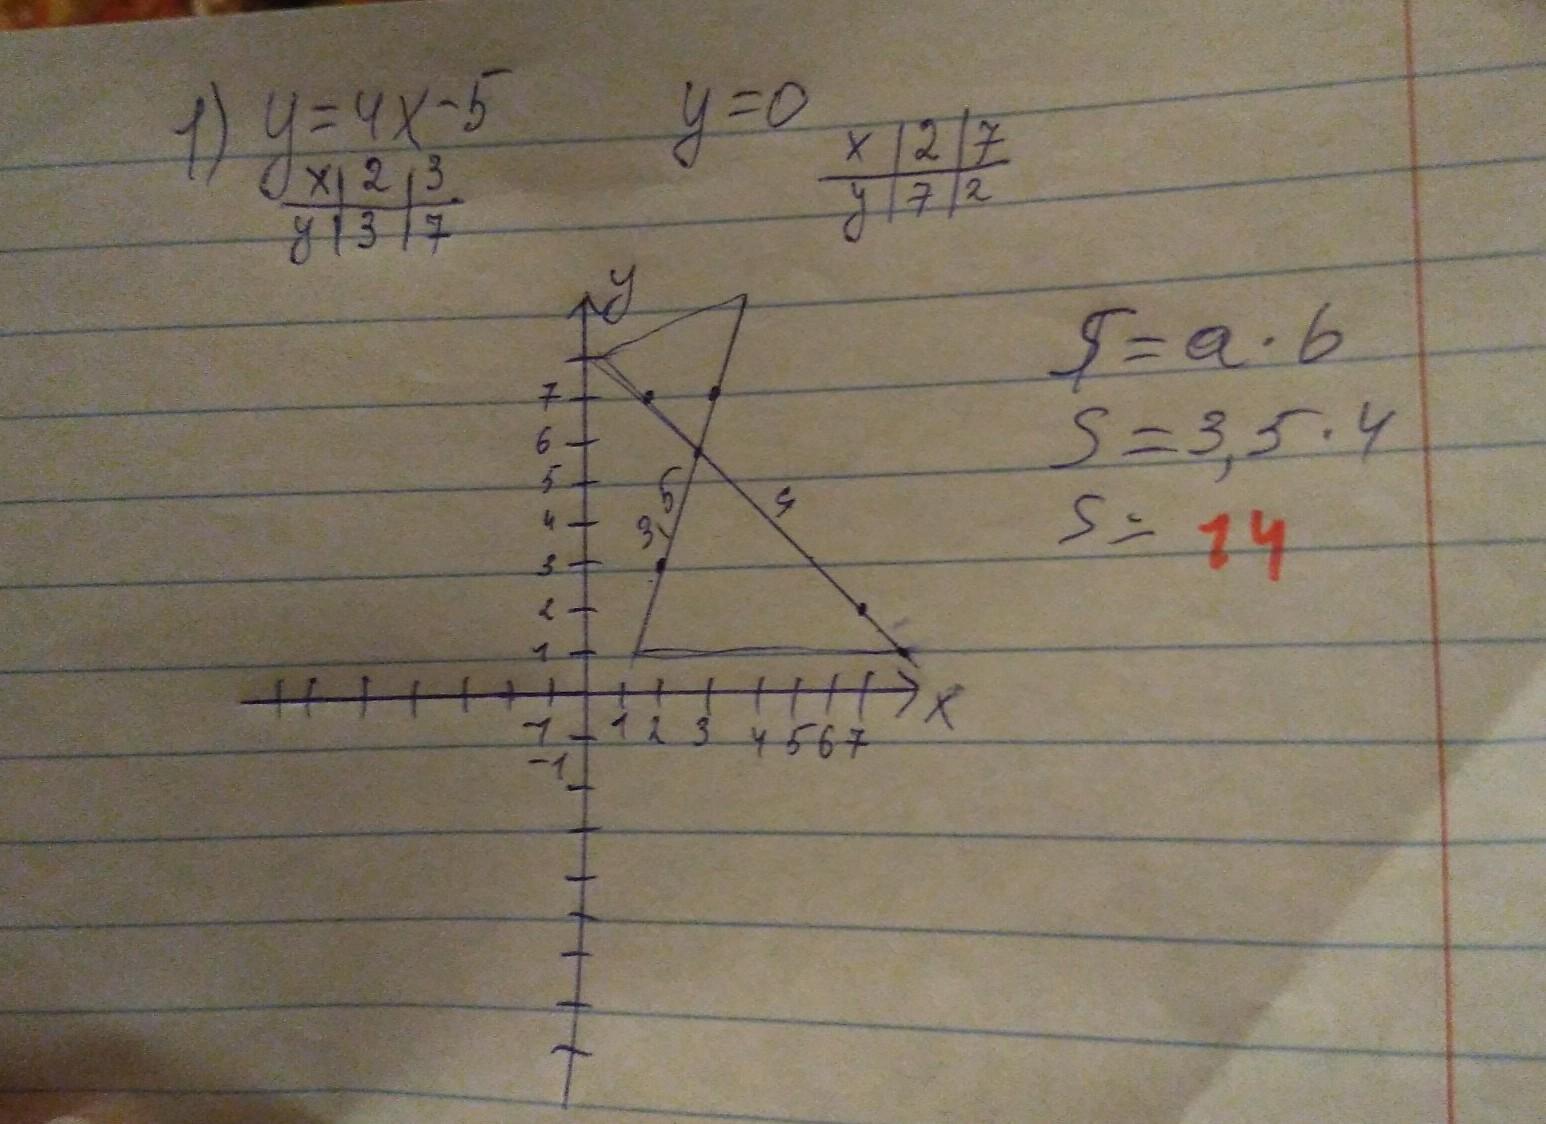 1) y=4x-5 y=0
x 2 3
y 3 7
x 2 7
y 7 2
y
7
6
5
4
3
2
1
x
-1 1 2 3 4 5 6 7
-1
S=a·b
S=3,5·4
S= 14